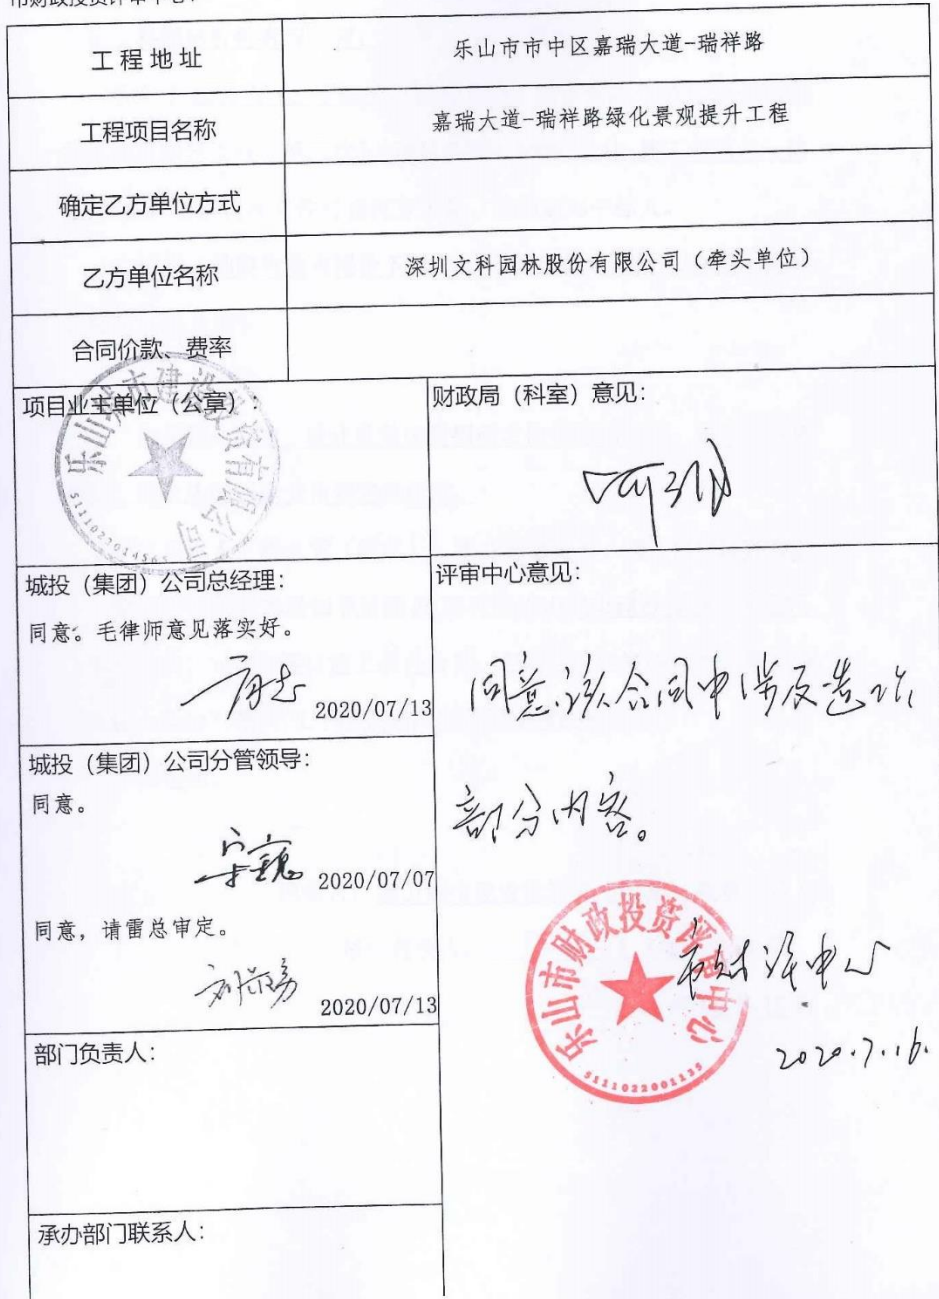 市财政投资评审中心:
工程地址
乐山市市中区嘉瑞大道-瑞祥路
工程项目名称
嘉瑞大道-瑞祥路绿化景观提升工程
确定乙方单位方式
乙方单位名称
深圳文科园林股份有限公司（牵头单位）
合同价款、费率
项目业主单位（公章）:
财政局（科室）意见:
城投（集团）公司总经理:
同意。毛律师意见落实好。
2020/07/13
城投（集团）公司分管领导:
同意。
2020/07/07
同意，请雷总审定。
2020/07/13
部门负责人:
承办部门联系人:
评审中心意见:
同意该合同中涉及造价
部分内容。
乐山市财政投资评审中心
5111022001135
市财评中心
2020.7.16.